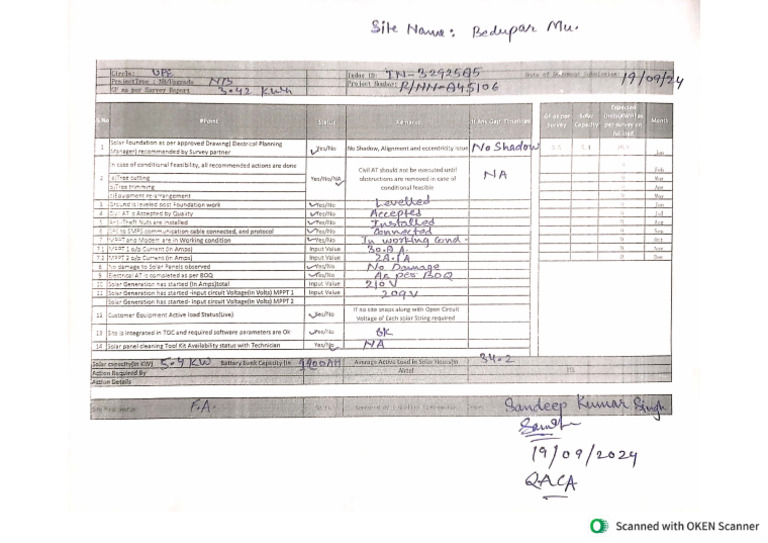 Site Name: Bedupar Mu.
Circle: UPE
Indus ID: IN-3292585
19/09/24
NTB
KP as per Survey Report 3.42 KWh
S.No #Point Status Remarks If Any Gap Month
1 Solar Foundation as per approved Drawing( Electrical Planning Manager) recommended by Survey partner Yes/No No Shadow, Alignment and eccentricity issue No Shadow Jan
2 In case of conditional feasibility, all recommended actions are done Yes/No/NA Civil AT should not be executed until obstructions are removed in case of conditional feasible NA Feb
a)Tree cutting Mar
b)Tree trimming Apr
c)Equipment re-arrangement May
3 Ground is leveled post Foundation work Yes/No Levelled Jun
4 Civil AT is Accepted by Quality Yes/No Accepted Jul
5 Anti-Theft Nuts are installed Yes/No Installed Aug
communication cable connected, and protocol Yes/No Connected Sep
7 MPPT and Modem are in Working condition Yes/No In working Cond - Oct
7.1 MPPT 1 o/p Current (in Amps) Input Value 30.8 A. Nov
7.2 MPPT 2 o/p Current (in Amps) Input Value 28.1A Dec
8 No damage to Solar Panels observed Yes/No No Damage
9 Electrical AT is completed as per BOQ Yes/No As per BOQ
10 Solar Generation has started (in Amps)total Input Value 210V
11 Solar Generation has started -input circuit Voltage(in Volts) MPPT 1 Input Value 209V
Solar Generation has started- input circuit Voltage(in Volts) MPPT 2
12 Customer Equipment Active load Status(Live) Yes/No If no share snaps along with Open Circuit Voltage of Each solar String required
13 Site is integrated in TOC and required software parameters are Ok Yes/No OK
14 Solar panel cleaning Tool Kit Availability status with Technician Yes/No NA
Solar capacity(in KW) 5.4 KW Battery Bank Capacity (in Average Active Load in 34.2
Action Required By Airtel
Action Details
F.A.
Sandeep Kumar Singh
19/09/2024
QACA
Scanned with OKEN Scanner